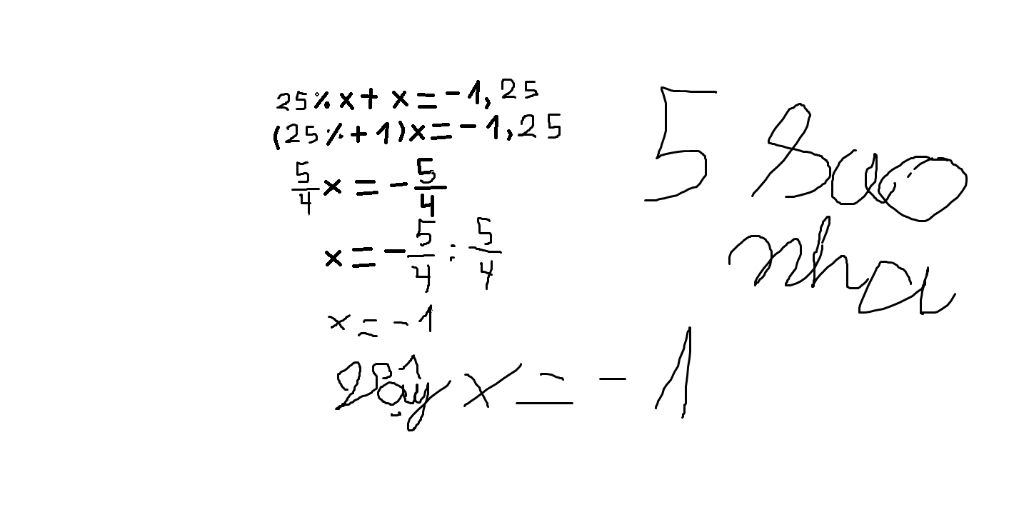 25% x + x = -1,25
(25% + 1)x = -1,25
5/4 x = - 5/4
x = - 5/4 : 5/4
x = -1
Vậy x = -1
5 sao
nha